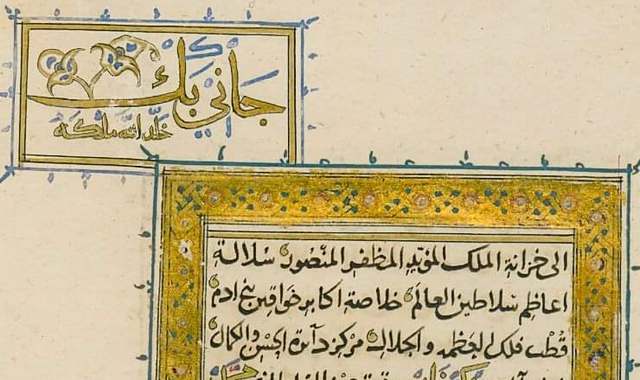 جانی بك
خلد الله ملكه
الى خزانة الملك المؤيد المظفر المنصور سلالة
اعاظم سلاطين العالم خلاصة اكابر خواقين بنى ادم
قطب فلك العظمة والجلال مركز دآئرة الحسن والكمال